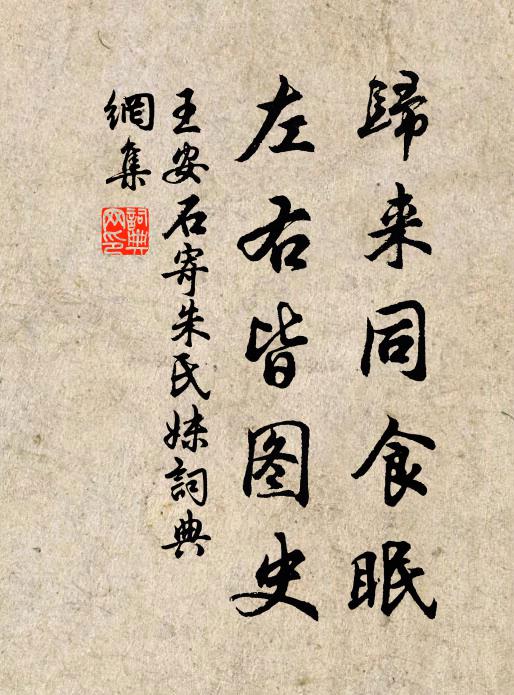 歸来同食眠
左右皆图史
王安石寄朱氏妹詞典
網集
詞典網印